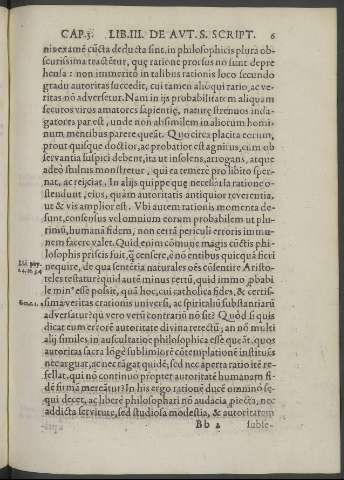 CAP.3. LIB.III. DE AVT. S. SCRIPT. 6
ni examé cũcta deducta sint. in philosophicis plura ob-
scurissima tractétur, quę ratione prorsus nó sunt depre
hensa: non immeritò in talibus rationis loco secundo
gradu autoritas succedit, cui tamen aliòqui ratio, ac ve-
ritas nó adversetur. Nam in ijs probabilitatem aliquam
secutos viros amatores sapientię, naturę strenuos inda-
gatores par est, unde non absimilem in aliorum homi-
num mentibus parere queãt. Quocirca placita eorum,
prout quisque doctior, ac probatior est agnitus, cum ob
servantia suspici debent, ita ut insolens, arrogans, atque
adeò stultus monstretur, qui ea temerè pro libito sper-
nat, ac rejciat. In alijs quippe quę necessaria ratione o-
stendunt, eius, quàm autoritatis antiquior reverentia,
ut & vis amplior est. Vbi autem rationis momenta de-
sunt, consensus vel omnium eorum probabilem ut plu-
rimũ, humanã fidem, non certã periculi erroris immu-
nem facere valet. Quid enim cõmune magis cũctis phi-
losophis priscis fuit, q̃ censere, è nó entibus quicquã fieri
nequire, de qua sentétia naturales oẽs cósentire Aristo-
teles testatur: quid auté minus certũ, quid immo ꝓbabi
le min' esse possit, quã hoc, cui catholica fides, & certis-
sima veritas creationis universi, ac spiritaliũ substantiarũ
adversatur? qũ vero verũ contrariũ nó sit? Quòd si quis
dicat eum errore autoritate divina retectũ; an nó multi
alij similes in auscultatione philosophica esse queãt. quos
autoritas sacra lógè sublimiorẽ cótemplationé institués
nec arguat, ac nec tãgat quidé; sed nec aperta ratio ité re-
fellat. qui nó continuò propter autoritaté humanam fi-
dé firmã mereãtur? In his ergo rationé ducé omninó se-
qui decet, ac liberè philosophari nó audacia ꝓiecta, nec
addicta servitute, sed studiosa modestia, & autoritatem
Bb 2 suble-